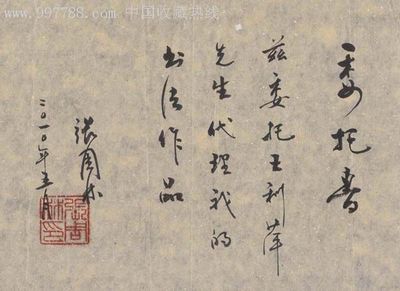 www.997788.com 中国收藏热线
委托書
兹委托王利萍
先生代理我的
书法作品
張周林
二〇一〇年五月
張周林印